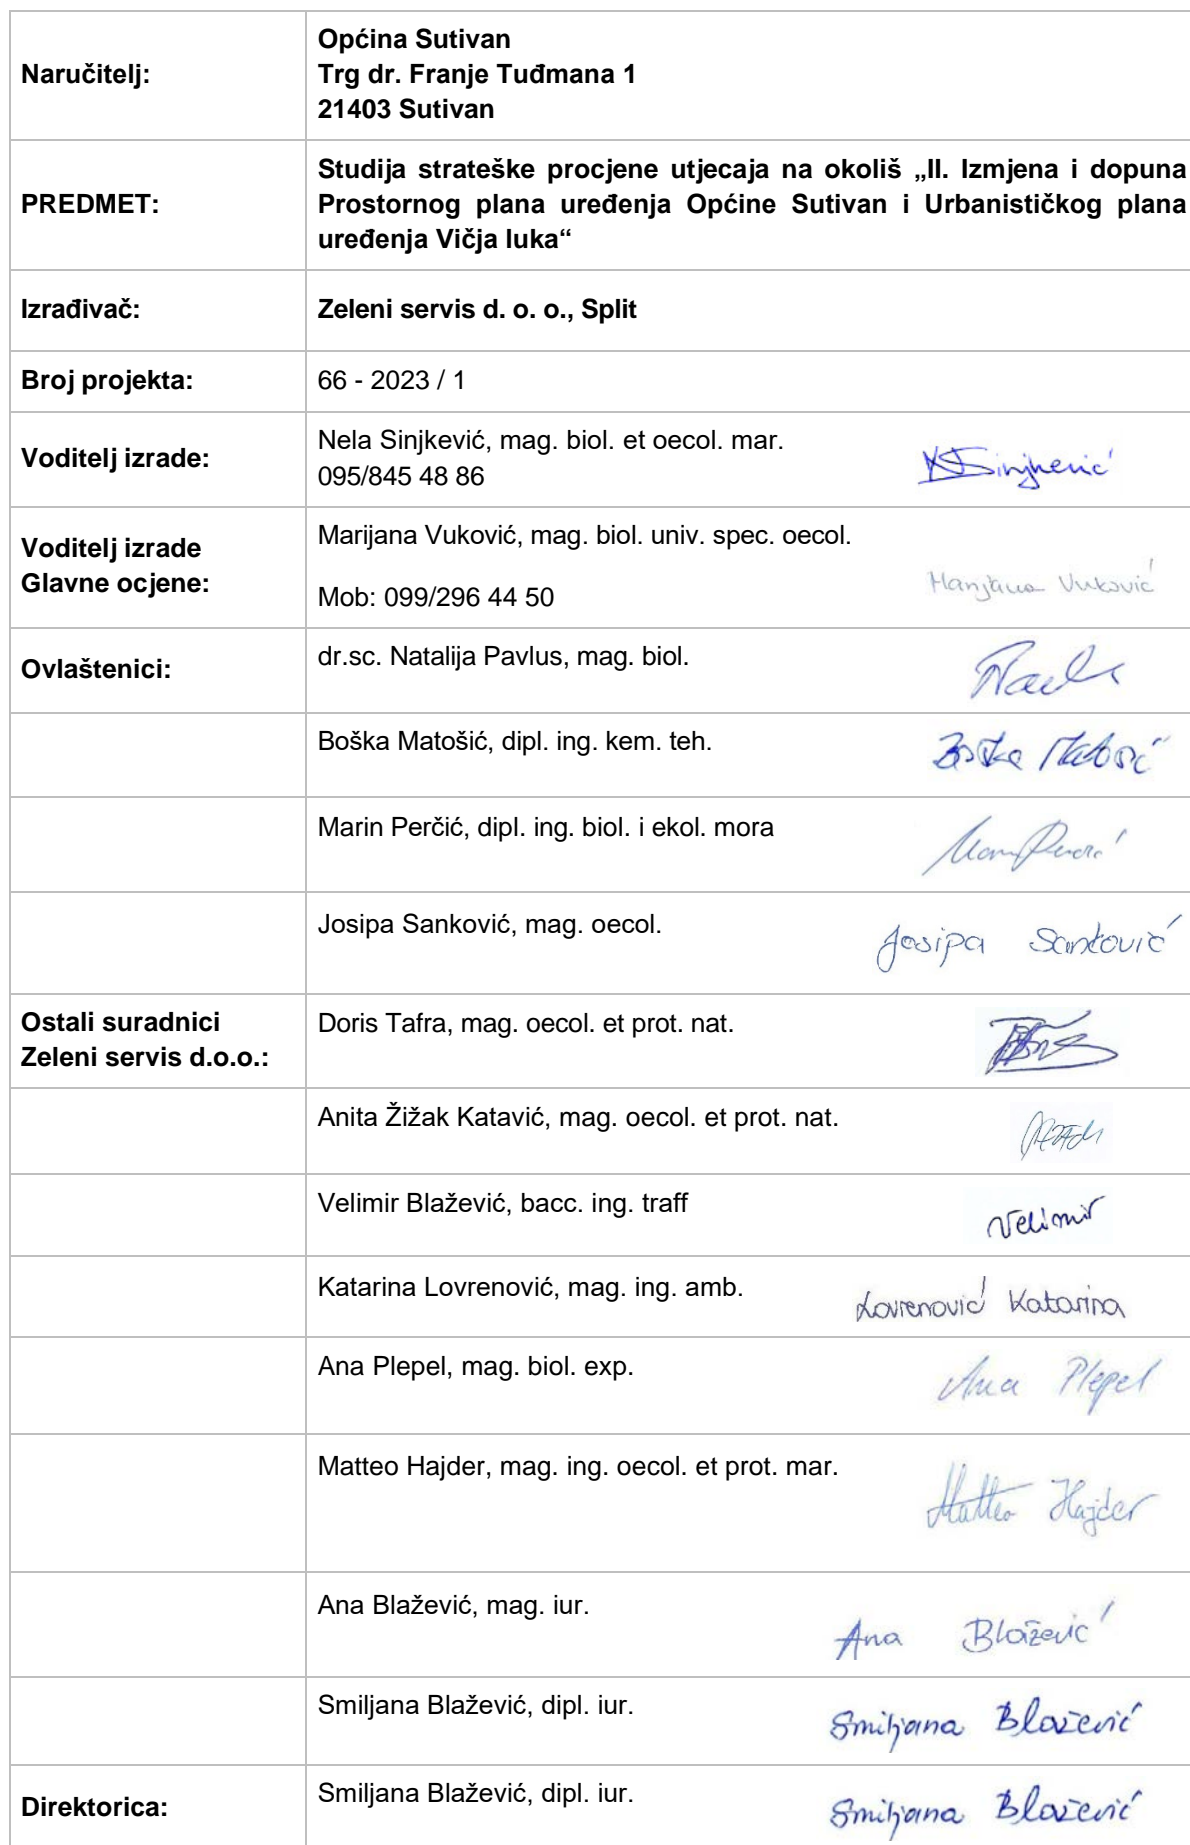 Naručitelj:
Općina Sutivan
Trg dr. Franje Tuđmana 1
21403 Sutivan
PREDMET:
Studija strateške procjene utjecaja na okoliš „II. Izmjena i dopuna
Prostornog plana uređenja Općine Sutivan i Urbanističkog plana
uređenja Vičja luka“
Izrađivač:
Zeleni servis d. o. o., Split
Broj projekta:
66 - 2023 / 1
Voditelj izrade:
Nela Sinjkević, mag. biol. et oecol. mar.
095/845 48 86
Voditelj izrade
Glavne ocjene:
Marijana Vuković, mag. biol. univ. spec. oecol.
Mob: 099/296 44 50
Marijana Vuković
Ovlaštenici:
dr.sc. Natalija Pavlus, mag. biol.
Boška Matošić, dipl. ing. kem. teh.
Boška Matošić
Marin Perčić, dipl. ing. biol. i ekol. mora
Josipa Sanković, mag. oecol.
Josipa Sanković
Ostali suradnici
Zeleni servis d.o.o.:
Doris Tafra, mag. oecol. et prot. nat.
Anita Žižak Katavić, mag. oecol. et prot. nat.
Velimir Blažević, bacc. ing. traff
Velimir
Katarina Lovrenović, mag. ing. amb.
Lovrenović Katarina
Ana Plepel, mag. biol. exp.
Ana Plepel
Matteo Hajder, mag. ing. oecol. et prot. mar.
Matteo Hajder
Ana Blažević, mag. iur.
Ana Blažević
Smiljana Blažević, dipl. iur.
Smiljana Blažević
Direktorica:
Smiljana Blažević, dipl. iur.
Smiljana Blažević